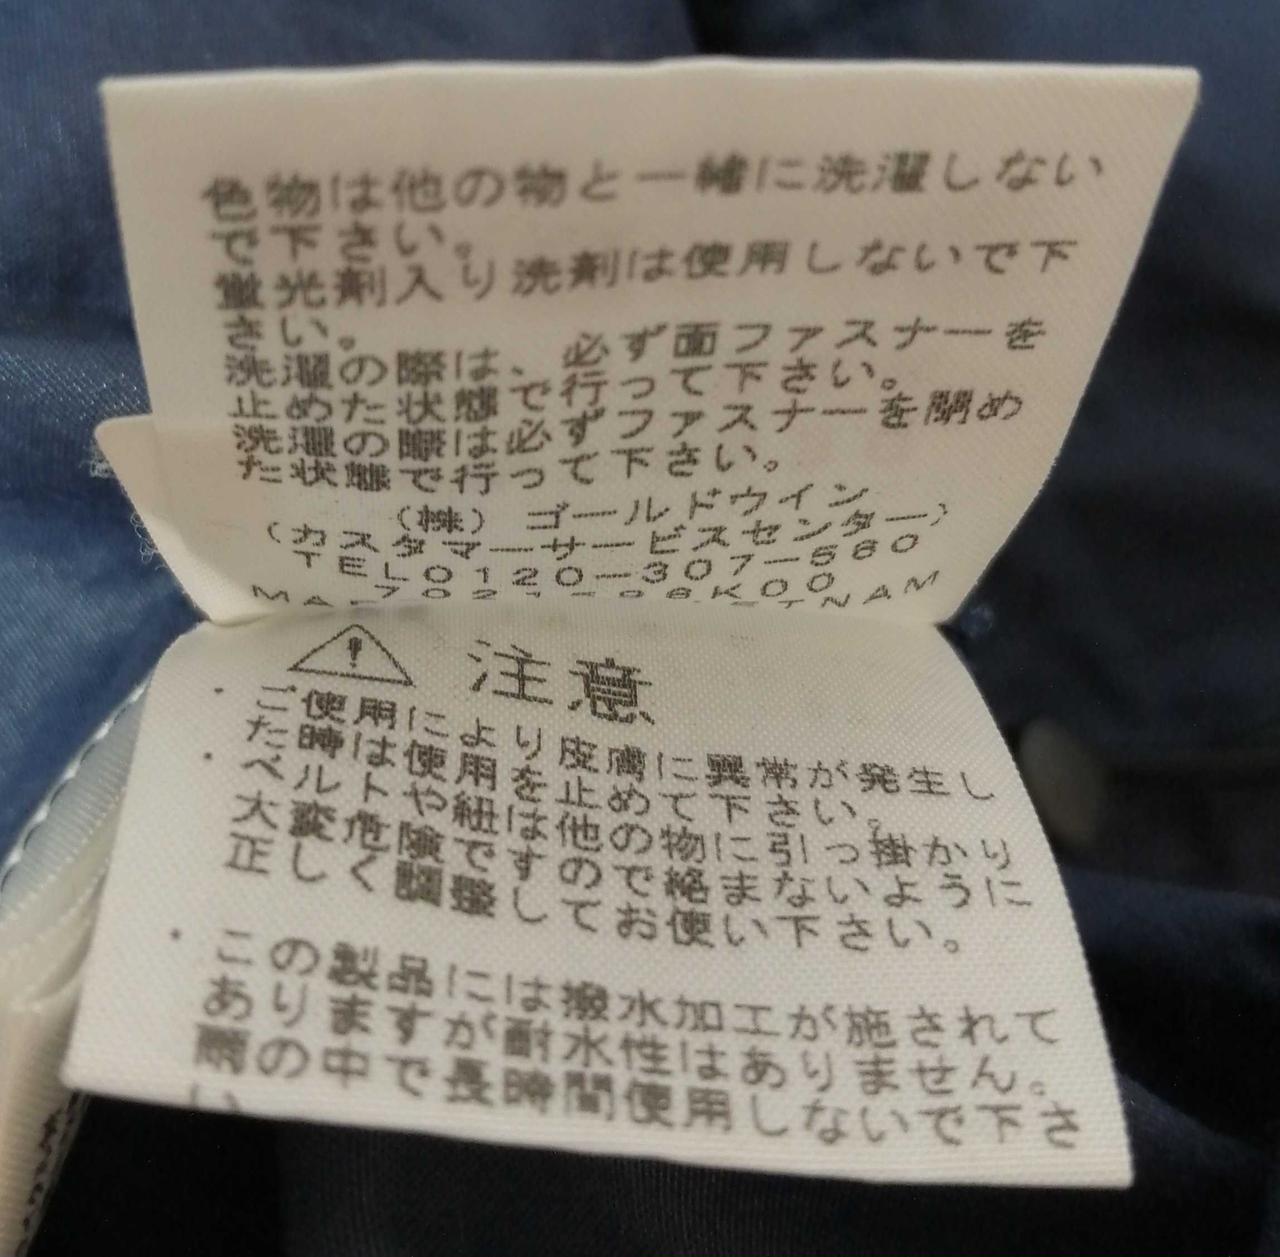 色物は他の物と一緒に洗濯しない
で下さい。
蛍光剤入り洗剤は使用しないで下
さい。
洗濯の際は、必ず面ファスナーを
止めた状態で行って下さい。
洗濯の際は必ずファスナーを閉め
た状態で行って下さい。
(株) ゴールドウイン
(カスタマーサービスセンター)
TEL0120-307-560
NAM
注意
・ご使用により皮膚に異常が発生し
た時は使用を止めて下さい。
・ベルトや紐は他の物に引っ掛かり
大変危険ですので絡まないように
正しく調整してお使い下さい。
・この製品には撥水加工が施されて
ありますが耐水性はありません。
雨の中で長時間使用しないで下さ
い